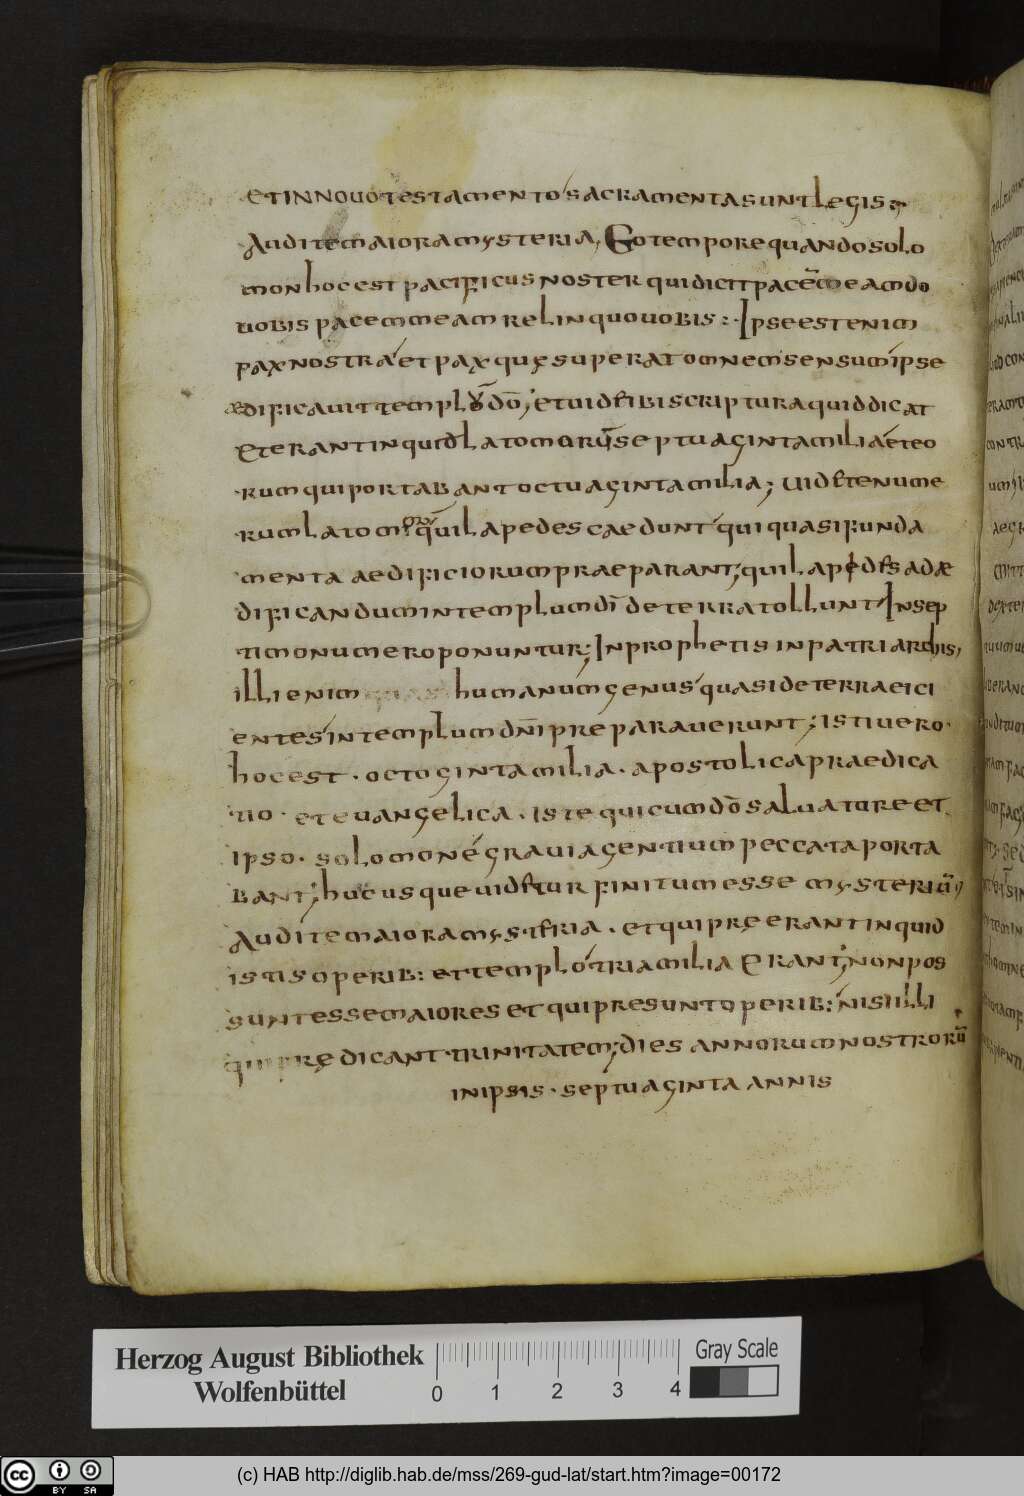 et in nouo testamento sacramenta sunt legis;
Audite maiora mysteria, Eo tempore quando solo
mon hoc est pacificus noster qui dicit pacē meam do
uobis pacem meam relinquo uobis: Ipse est enim
pax nostra et pax quę superat omnem sensum ipse
aedificauit templū dō; et uidete ibi scriptura quid dicat
Et erant inquid latomorū septuaginta milia et eo
rum qui portabant octuaginta milia; Uidete nume
rum latomorū qui lapedes caedunt qui quasi funda
menta aedificiorum praeparant; qui lapedes ad æ
dificandum in templum dī de terra tollunt In sep
timo numero ponuntur; In prophetis in patriarchis,
illi enim humanum genus quasi de terra eici
entes in templum dn̄i preparauerunt; isti uero
hoc est · octoginta milia · apostolica praedica
tio · et euangelica · iste qui cum dō saluatore et
ipso · solomone grauia gentium peccata porta
bant; hucusque uidetur finitum esse mysteriū;
Audite maiora mysteria · et qui pręerant inquid
istis operib: et templo tria milia Erant; non pos
sunt esse maiores et qui presunt operib: nisi illi
qui prędicant trinitatem; dies annorum nostrorū
in ipsis · septuaginta annis
Herzog August Bibliothek
Wolfenbüttel
0 1 2 3 4
Gray Scale
cc BY SA
(c) HAB http://diglib.hab.de/mss/269-gud-lat/start.htm?image=00172